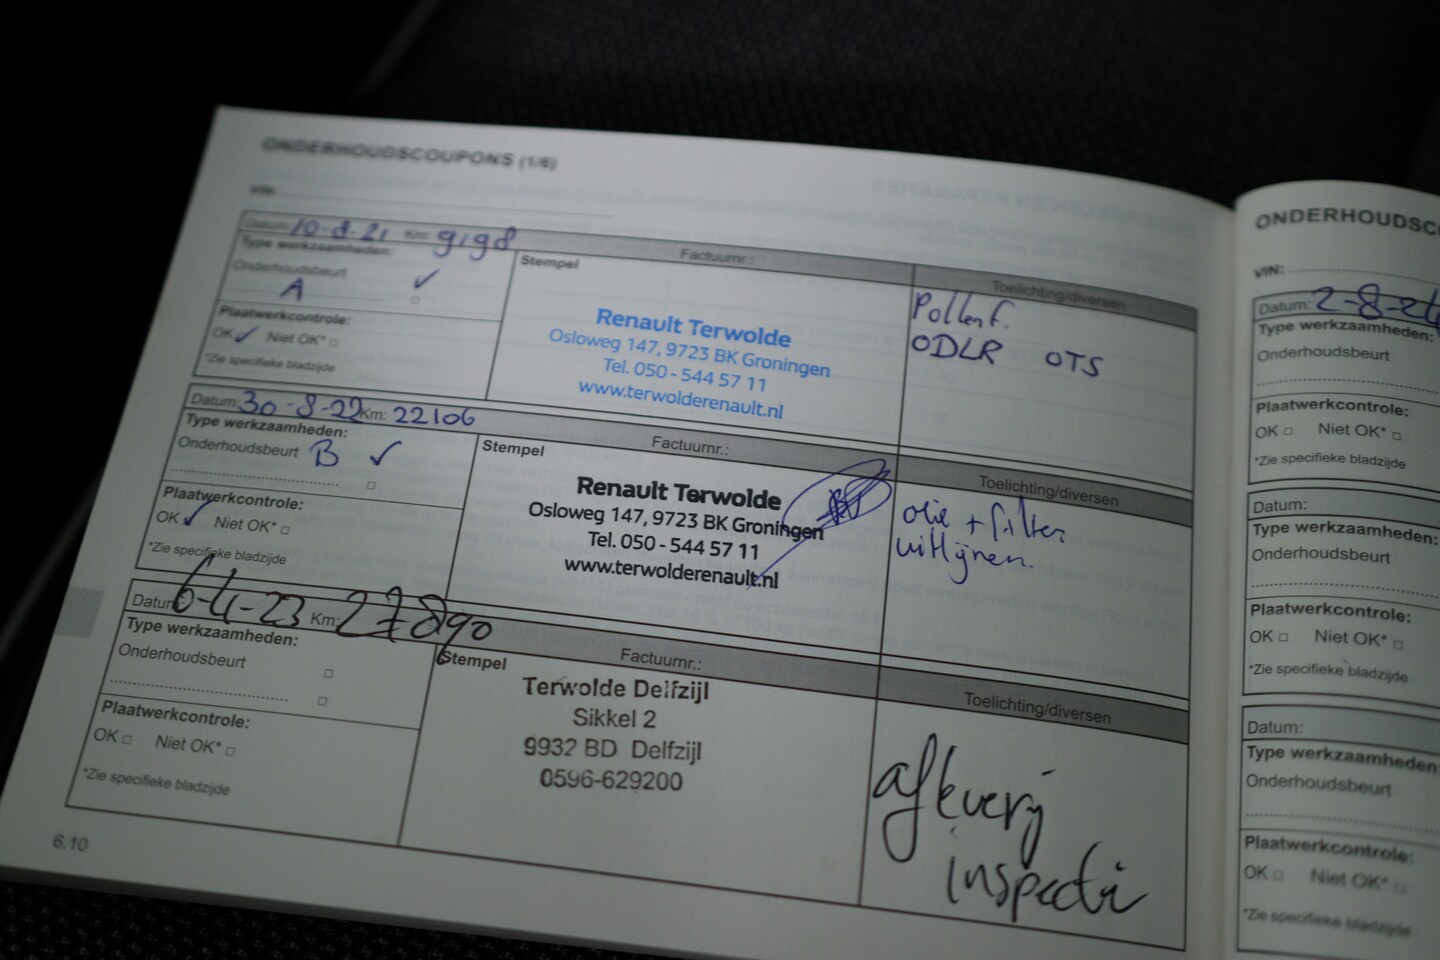 ONDERHOUDSCOUPONS (1/6)
VIN:
Datum: 10-8-21 Km: 9198
Type werkzaamheden:
Onderhoudsbeurt
A ✓
Plaatwerkcontrole:
OK ✓ Niet OK* □
*Zie specifieke bladzijde
Stempel
Factuurnr.:
Renault Terwolde
Osloweg 147, 9723 BK Groningen
Tel. 050 - 544 57 11
www.terwolderenault.nl
Toelichting/diversen
Pollenf.
ODLR OTS
Datum: 30-8-22 Km: 22106
Type werkzaamheden:
Onderhoudsbeurt B ✓
□
Plaatwerkcontrole:
OK ✓ Niet OK* □
*Zie specifieke bladzijde
Stempel
Factuurnr.:
Renault Terwolde
Osloweg 147, 9723 BK Groningen
Tel. 050 - 544 57 11
www.terwolderenault.nl
Toelichting/diversen
olie + filter
uitlijnen.
Datum: 6-4-23 Km: 27890
Type werkzaamheden:
Onderhoudsbeurt □
□
Plaatwerkcontrole:
OK □ Niet OK* □
*Zie specifieke bladzijde
Stempel
Factuurnr.:
Terwolde Delfzijl
Sikkel 2
9932 BD Delfzijl
0596-629200
Toelichting/diversen
aflevering
inspectie
6.10
ONDERHOUDSC
VIN:
Datum: 2-8-24
Type werkzaamheden:
Onderhoudsbeurt
Plaatwerkcontrole:
OK □ Niet OK* □
*Zie specifieke bladzijde
Datum:
Type werkzaamheden:
Onderhoudsbeurt
Plaatwerkcontrole:
OK □ Niet OK* □
*Zie specifieke bladzijde
Datum:
Type werkzaamheden:
Onderhoudsbeurt
Plaatwerkcontrole:
OK □ Niet OK* □
*Zie specifieke bladzijde